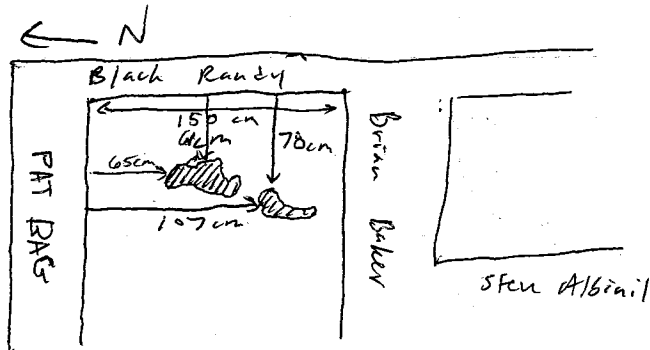 N
Black Randy
150 cm
61cm
78cm
65cm
107cm
PAT BAG
Brian Baker